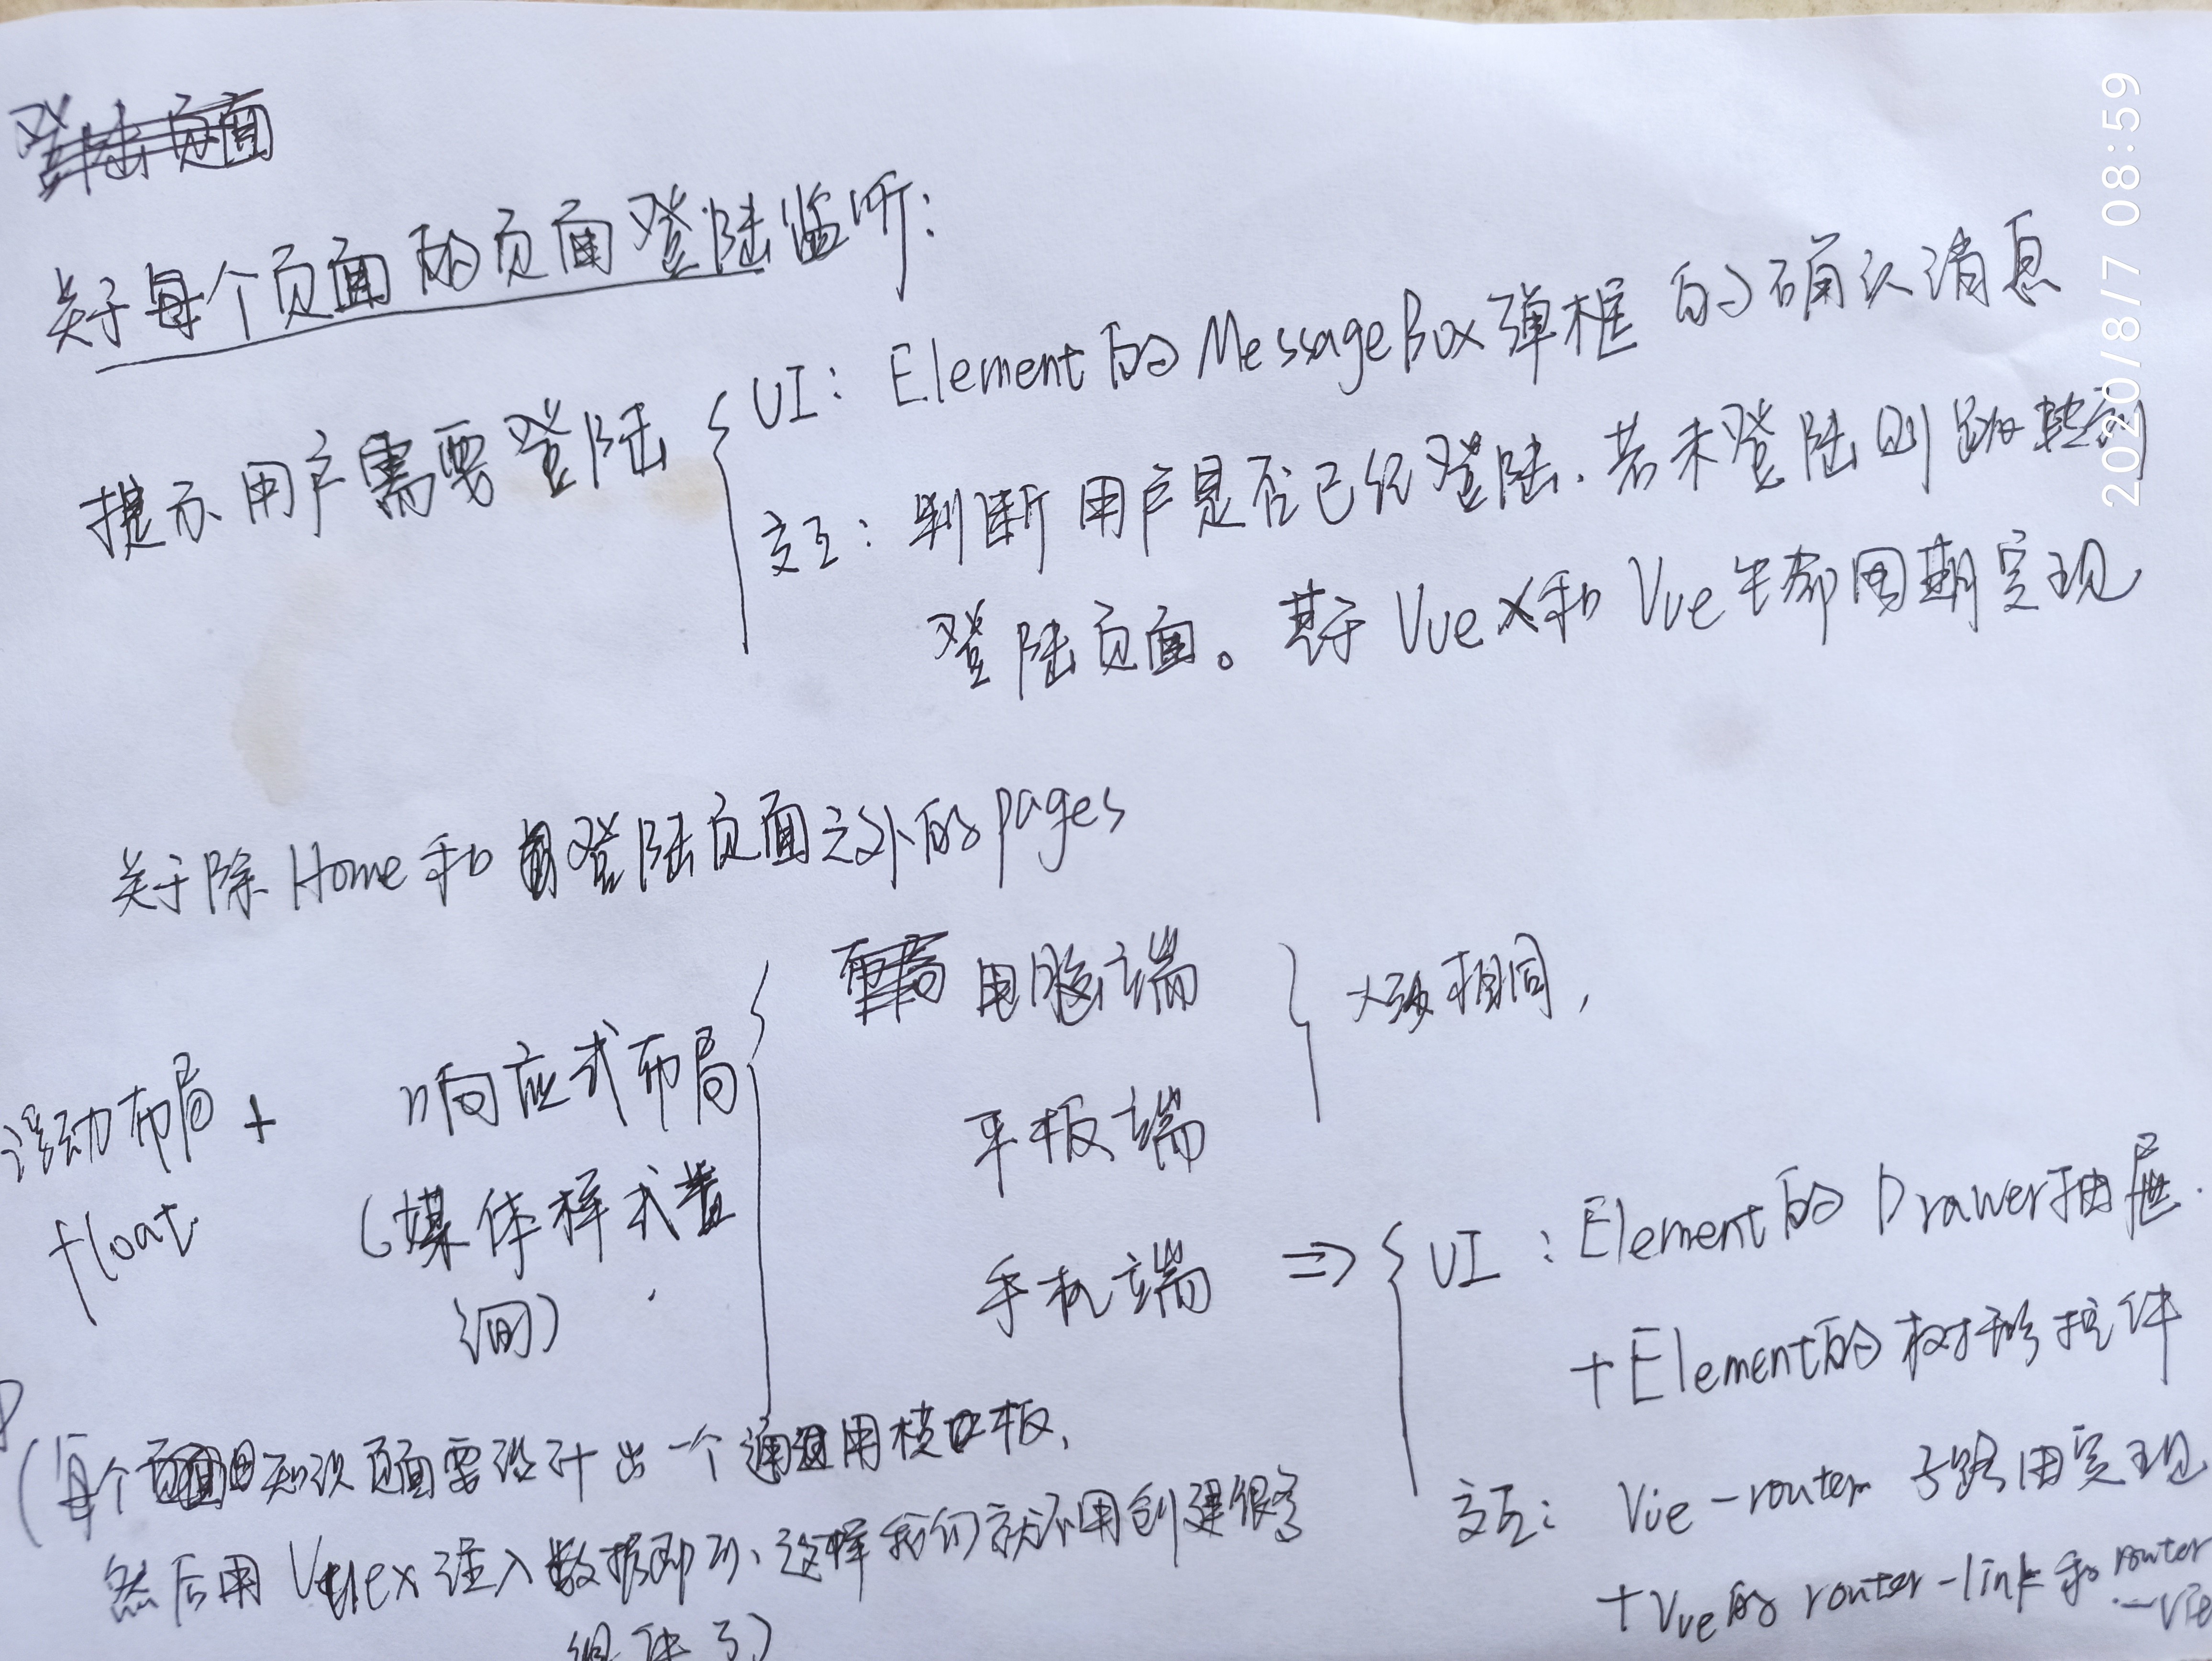 登陆页面
关于每个页面的页面登陆监听:
提示用户需要登陆
UI: Element的MessageBox弹框的确认消息
交互: 判断用户是否已经登陆.若未登陆则跳转到
登陆页面。基于Vuex和Vue生命周期实现
关于除Home和登陆页面之外的pages
浮动布局 +
float
响应式布局
(媒体样式查
询)
电脑端
平板端
大致相同,
手机端 =>
UI : Element的Drawer抽屉.
+Element的树形控件
交互: Vue-router 子路由实现
+Vue的router-link和router
-vie
(每个知识页面需设计出一个通用模板,
然后用Vuex注入数据即可、这样我们就不用创建很多
组件了)
2020/8/7 08:59